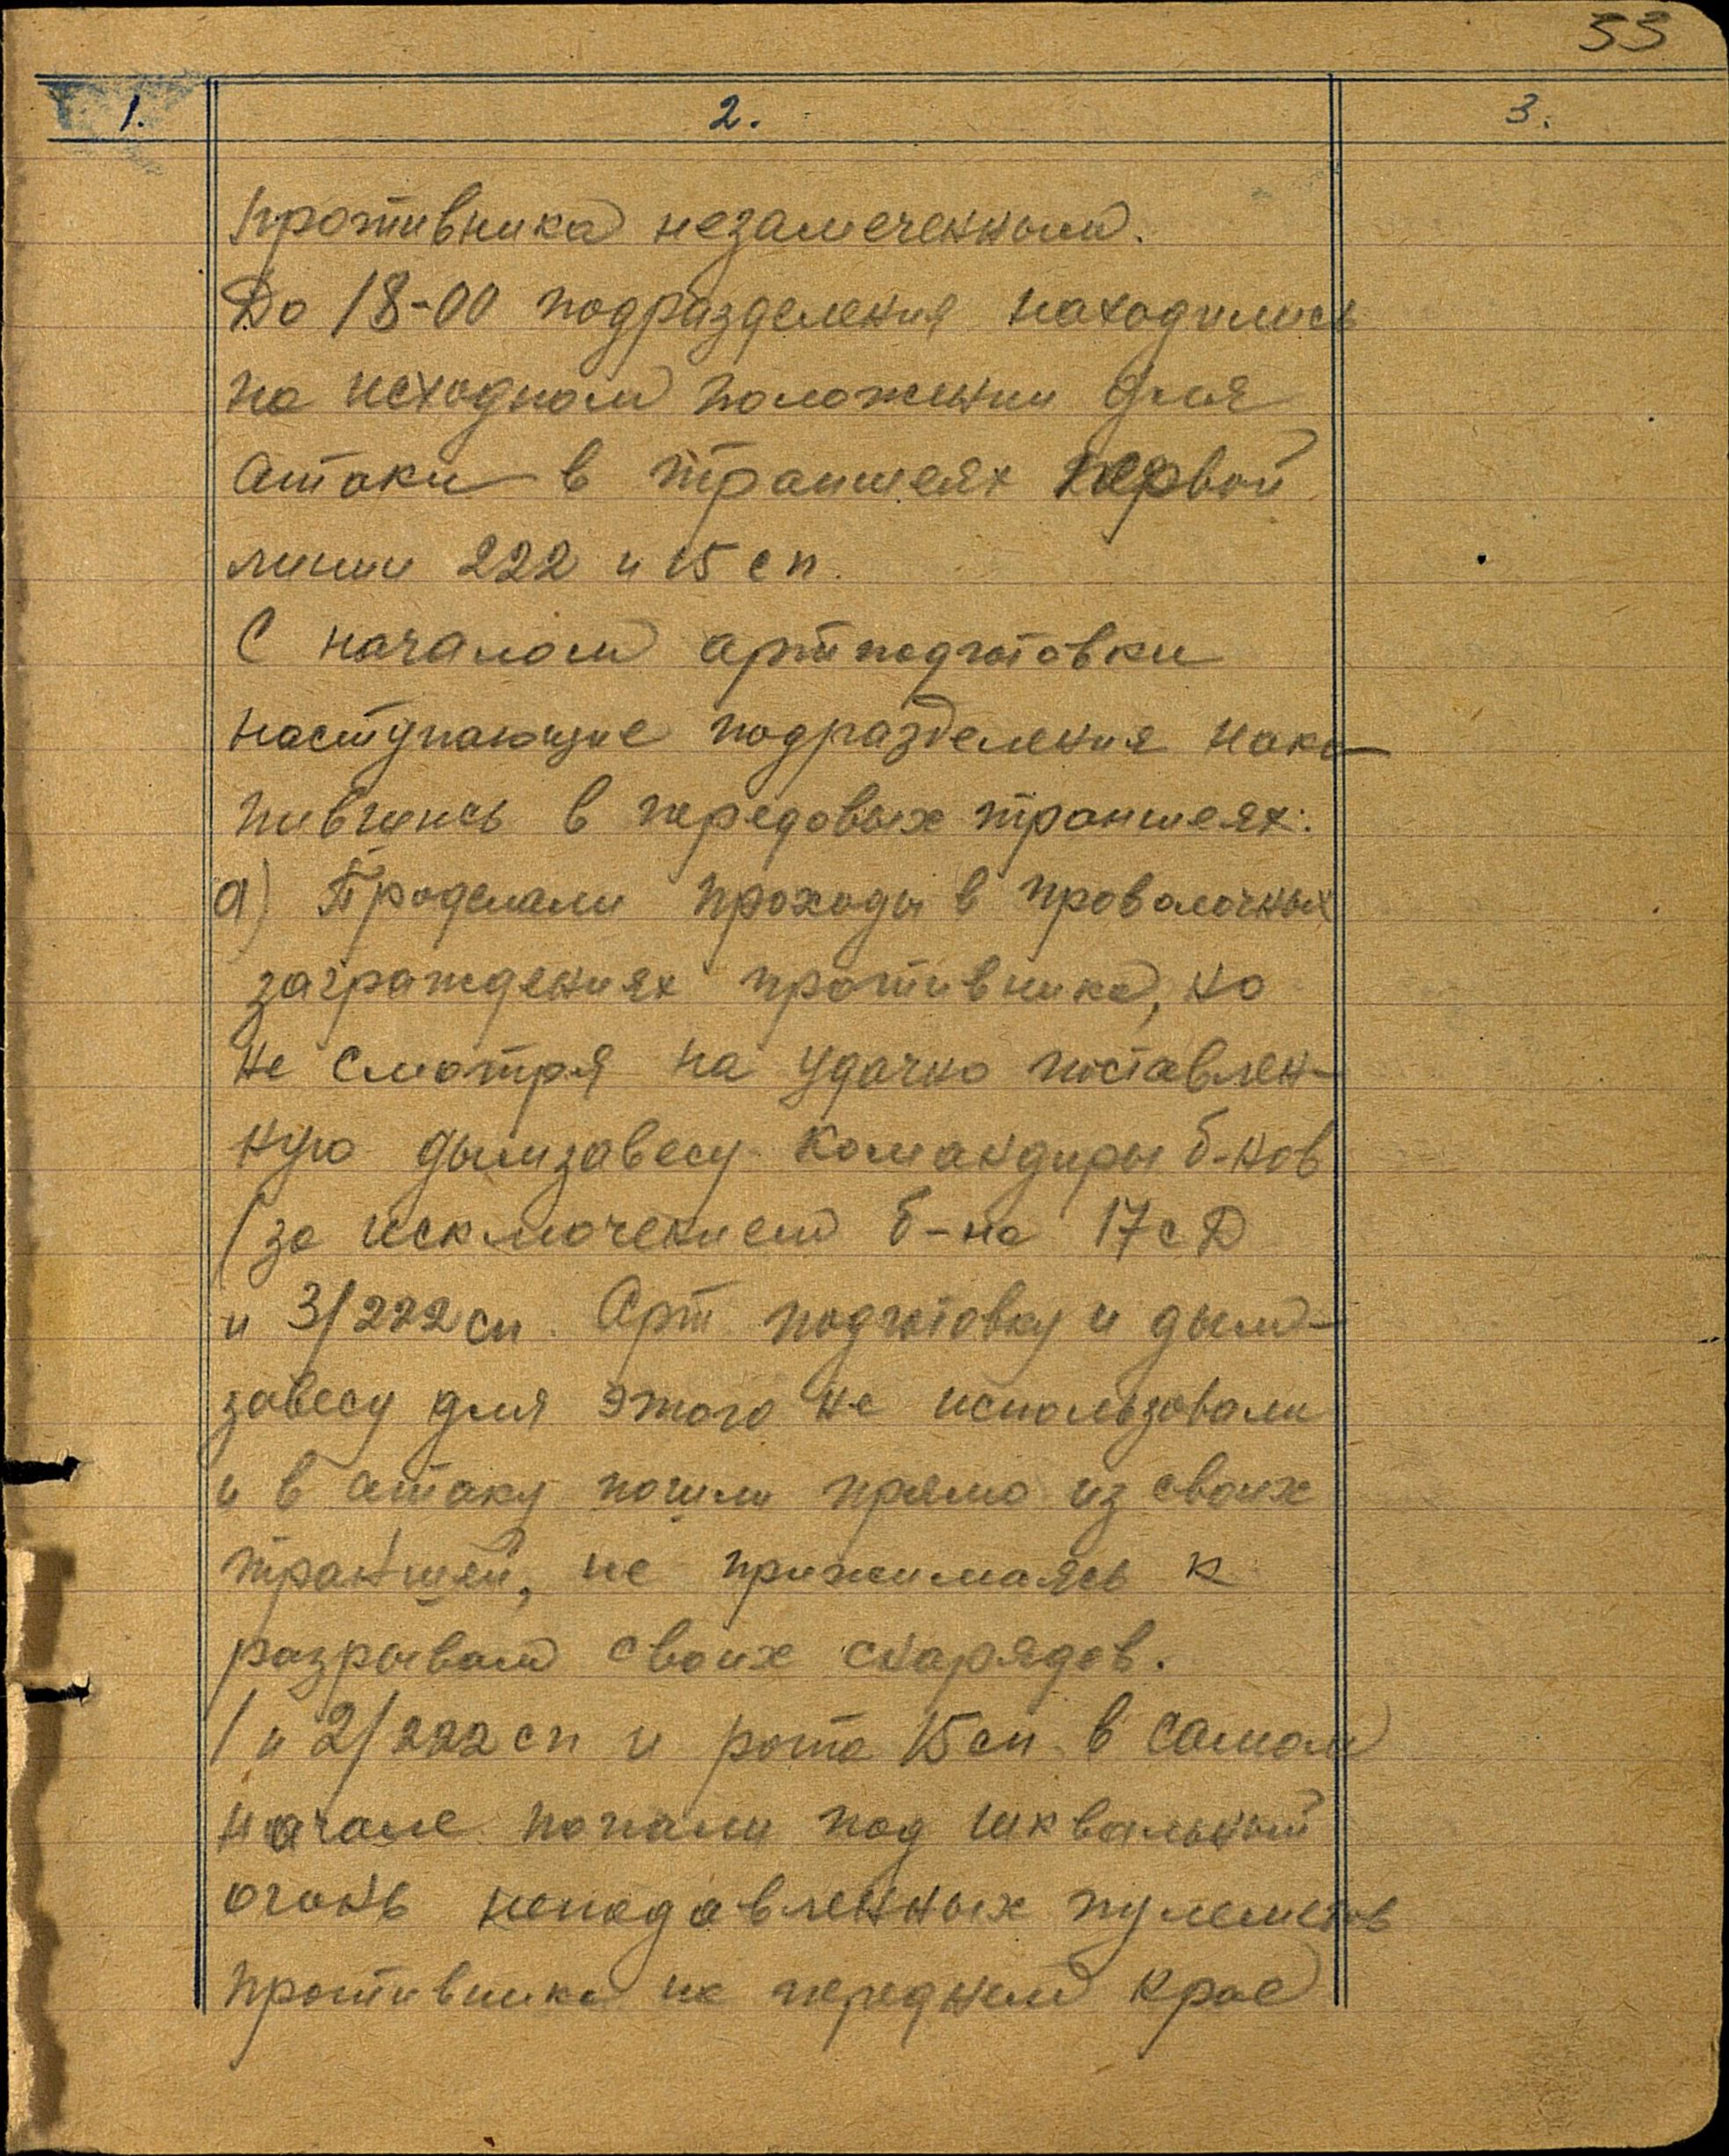 53
1. 2. 3.
противника незамеченным.
До 18-00 подразделения находились
на исходном положении для
атаки в траншеях первой
линии 222 и 15 сп.
С началом артподготовки
наступающие подразделения нако-
пившись в передовых траншеях.
а) Проделали проходы в проволочных
заграждениях противника, но
не смотря на удачно поставлен-
ную дымзавесу командиры б-нов
(за исключением б-на 17 сД
и 3/222 сп. Арт подготовку и дым-
завесу для этого не использовали
и в атаку пошли прямо из своих
траншей, не прижимаясь к
разрывам своих снарядов.
1 и 2/222 сп и рота 15 сп в самом
начале попали под шквальный
огонь неподавленных пулеметов
противника на переднем крае